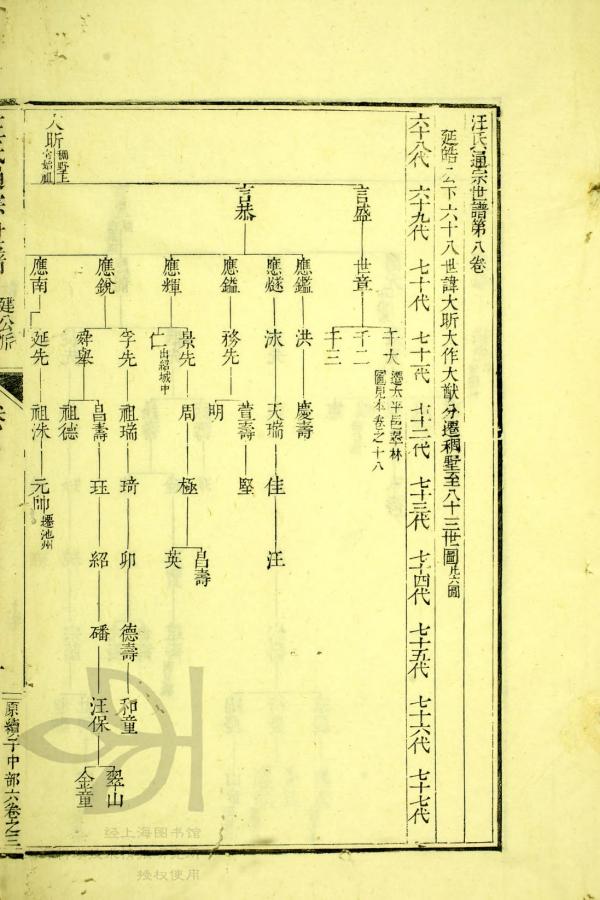 汪氏通宗世譜第八卷
延皓公下六十八世諱大昕大作大猷分遷稠墅至八十三世圖凡六圖
六十八代 六十九代 七十代 七十一代 七十二代 七十三代 七十四代 七十五代 七十六代 七十七代
言盛 世章 千大 遷太平邑翠林
圖見本卷之十八
千二
千三
應鑑 洪 慶壽
應燧 洣 天瑞 佳 汪
言恭 應鎰 務先 萱壽 堅
明
應輝 景先 周 極 昌壽
英
仁 由紹城中
應銳 孚先 祖瑞 琦 卯 德壽 和童
舜舉 昌壽 珏 紹 磻 汪保 翠山
金童
祖德
大昕 稠墅上
宅始祖
應南 延先 祖洙 元帥 遷池州
建公派
原續子中部六卷之三
经上海图书馆
授权使用